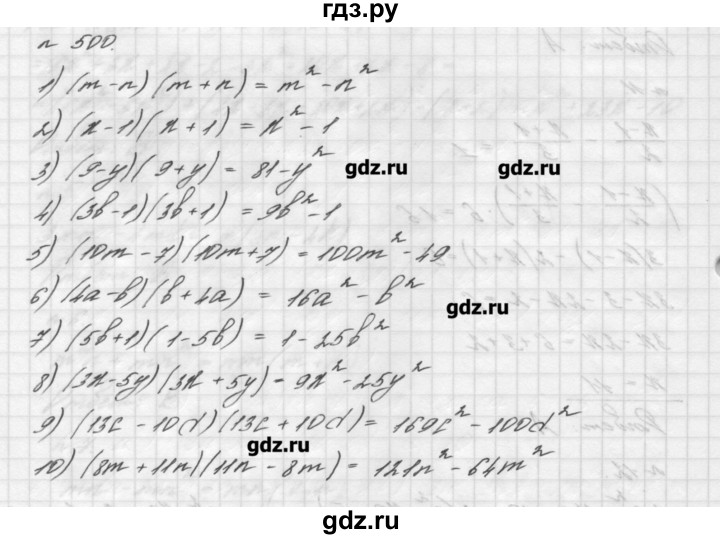 гдз.ру
n 500.
1) (m-n)(m+n) = m² - n²
2) (x-1)(x+1) = x² - 1
3) (9-y)(9+y) = 81-y²
gdz.ru
gdz.ru
4) (3b-1)(3b+1) = 9b² - 1
5) (10m - 7)(10m+7) = 100m² - 49
6) (4a-b)(b+4a) = 16a² - b²
gdz.ru
7) (5b+1)(1-5b) = 1 - 25b²
8) (3x-5y)(3x+5y) = 9x² - 25y²
9) (13c - 10d)(13c + 10d) = 169c² - 100d²
gdz.ru
10) (8m + 11n)(11n - 8m) = 121n² - 64m²
gdz.ru